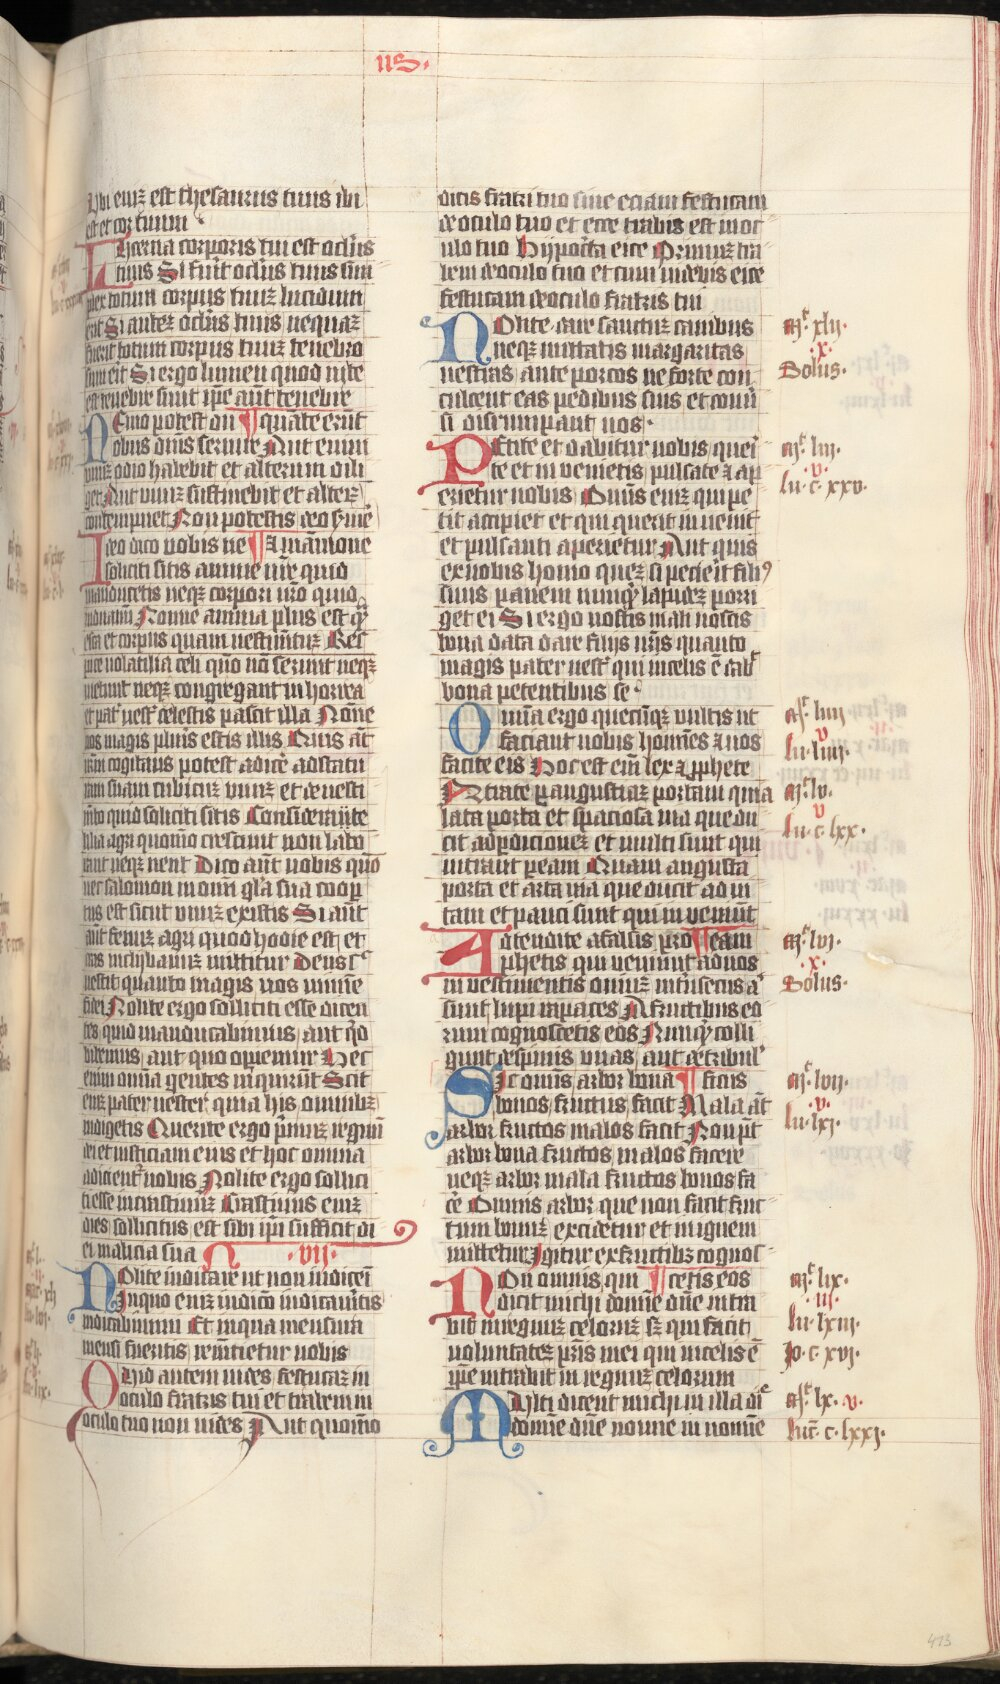 us.
Ubi eniʒ est thesaurus tuus ibi
est et cor tuum
Lucerna corporis tui est oculus
tuus Si fuerit oculus tuus sim
plex totum corpus tuuʒ lucidum
erit Si auteʒ oculus tuus nequaʒ
fuerit totum corpus tuuʒ tenebro
sum erit Si ergo lumen quod in te
est tenebre sunt ip̄e aūt tenebre
Nemo potest du ¶ quāte erūt
obus dn̄is seruire Aut enim
unuʒ odio habebit et alterum dili
get Aut unuʒ sustinebit et alterʒ
contempnet Non potestis deo s̄uire
Ideo dico vobis ne ¶ ⁊ māmone
soliciti sitis anime vr̄e quid
manducetis neqʒ corpori vr̄o quid
induam̄ Nonne anima plus est qͣ
esca et corpus quam vestimētuʒ Res
pice volatilia celi quō nō serunt neqʒ
metunt neqʒ congregant in horrea
et pat̄ vest̄ celestis pascit illa Nōne
vos magis pluris estis illis Quis aūt
vr̄m cogitans potest adicē ad statu
ram suam cubituʒ unuʒ et de vesti
mēto quid soliciti sitis Considerate
lilia agri quomō crescunt non labo
rant neqʒ nent Dico aūt vobis quō
nec salomon in omni gl̄a sua coop
tus est sicut unuʒ ex istis Si aūt
aūt fenuʒ agri quod hodie est et
cras in clibanuʒ mittitur Deus sͨ
vestit quanto magis vos minie
fidei Nolite ergo solliciti esse dicen
tes quid manducabimus aut qͥd
bibemus aut quo operiemur Hec
enim omīa gentes inquirūt Scit
eniʒ pater vester quia his omnibʒ
indigetis Querite ergo p̄muʒ regnū
dei et iusticiam eius et hoc omnia
adicient̄ vobis Nolite ergo sollici
ti esse in crastinuʒ Crastinus eniʒ
dies sollicitus est sibi ip̄i sufficit di
ei malicia sua · vii ·
Nolite iudicare ut non iudicemī
In quo eniʒ iudicō iudicaūitis
iudicabimini Et in qua mensura
mensi fueritis remetietur vobis
Quid autem vides festucaʒ in
oculo fratris tui et trabem in
oculo tuo non vides Aut quomō
dicis fratri tuo sine eciam festucam
de oculo tuo et ecce trabis est in oc
ulo tuo Hypocrita eice Primuʒ tra
bem de oculo tuo et tunc videbis eice
festucam de oculo fratris tui
Nolite dare sanctuʒ canibus
neqʒ mittatis margaritas
vestras ante porcos ne forte con
culcent eas pedibus suis et conū
si disrumpant vos ·
Petite et dabitur vobis quei
te et in venietis pulsate ⁊ ap
erietur vobis Omīs eniʒ qui pe
tit accipiet et qui querit inuenit
et pulsanti aperietur Aut quis
ex vobis homo queʒ si pecierit fili9
suus panem nunqͥ lapideʒ porri
get ei Si ergo vos cuʒ mali nostis
bona data dare filijs vr̄is quanto
magis pater vest̄ qui in celis ē dab̄
bona petentibus se ·
Omīa ergo quecūqʒ vultis ut
faciant vobis homīes ⁊ vos
facite eis Hoc est em̄ lex ⁊ prophete
Intrate ꝑ angustaʒ portam quia
lata porta et spaciosa via que du
cit ad perdicioneʒ et multi sunt qui
intrant p̄ eam Quam angusta
porta et arta via que ducit ad vi
tam et pauci sunt qui in veniūt
Attendite a falsis pro ¶ eam
phetis qui veniunt ad vos
in vestimentis ouiuʒ intrinsecus aͥ
sunt lupi rapaces A fructibus eo
rum cognoscetis eos Nunqͥ colli
gunt de spinis uvas aut de tribul̄
Sic omīs arbor bona ¶ ficus
bonos fructus facit Mala aūt
arbor fructos malos facit Non p̄t
arbor bona fructos malos facere
neqʒ arbor mala fructos bonos fa
cē Omnis arbor que non facit fruc
tum bonuʒ excidetur et in ignem
mittetur Igitur ex fructibʒ cognos
Non omnis qui ¶ cetis eos
dicit michi domīe dn̄e intra
bit in regnuʒ celoruʒ sʒ qui facit
voluntateʒ pr̄is mei qui in celis ē
ip̄e intrabit in regnuʒ celorum
Multi dicent michi in illa diē
domīe dn̄e nonne in nomīe
mͬ. xlij.
.x.
Solus.
mͬ. liij.
.v.
lu. c. xxv.
mͬ. liiij
v
lu. liiij.
mͬ. lv.
v
lu. c. lxx.
mͬ. lvj.
.x.
Solus.
mͬ. lvij.
.v.
lu. lxj.
mͬ. lix.
.iij.
lu. lxiij.
Jo. c. xvj.
mͬ. lx. v.
luc. c. lxxj.
413